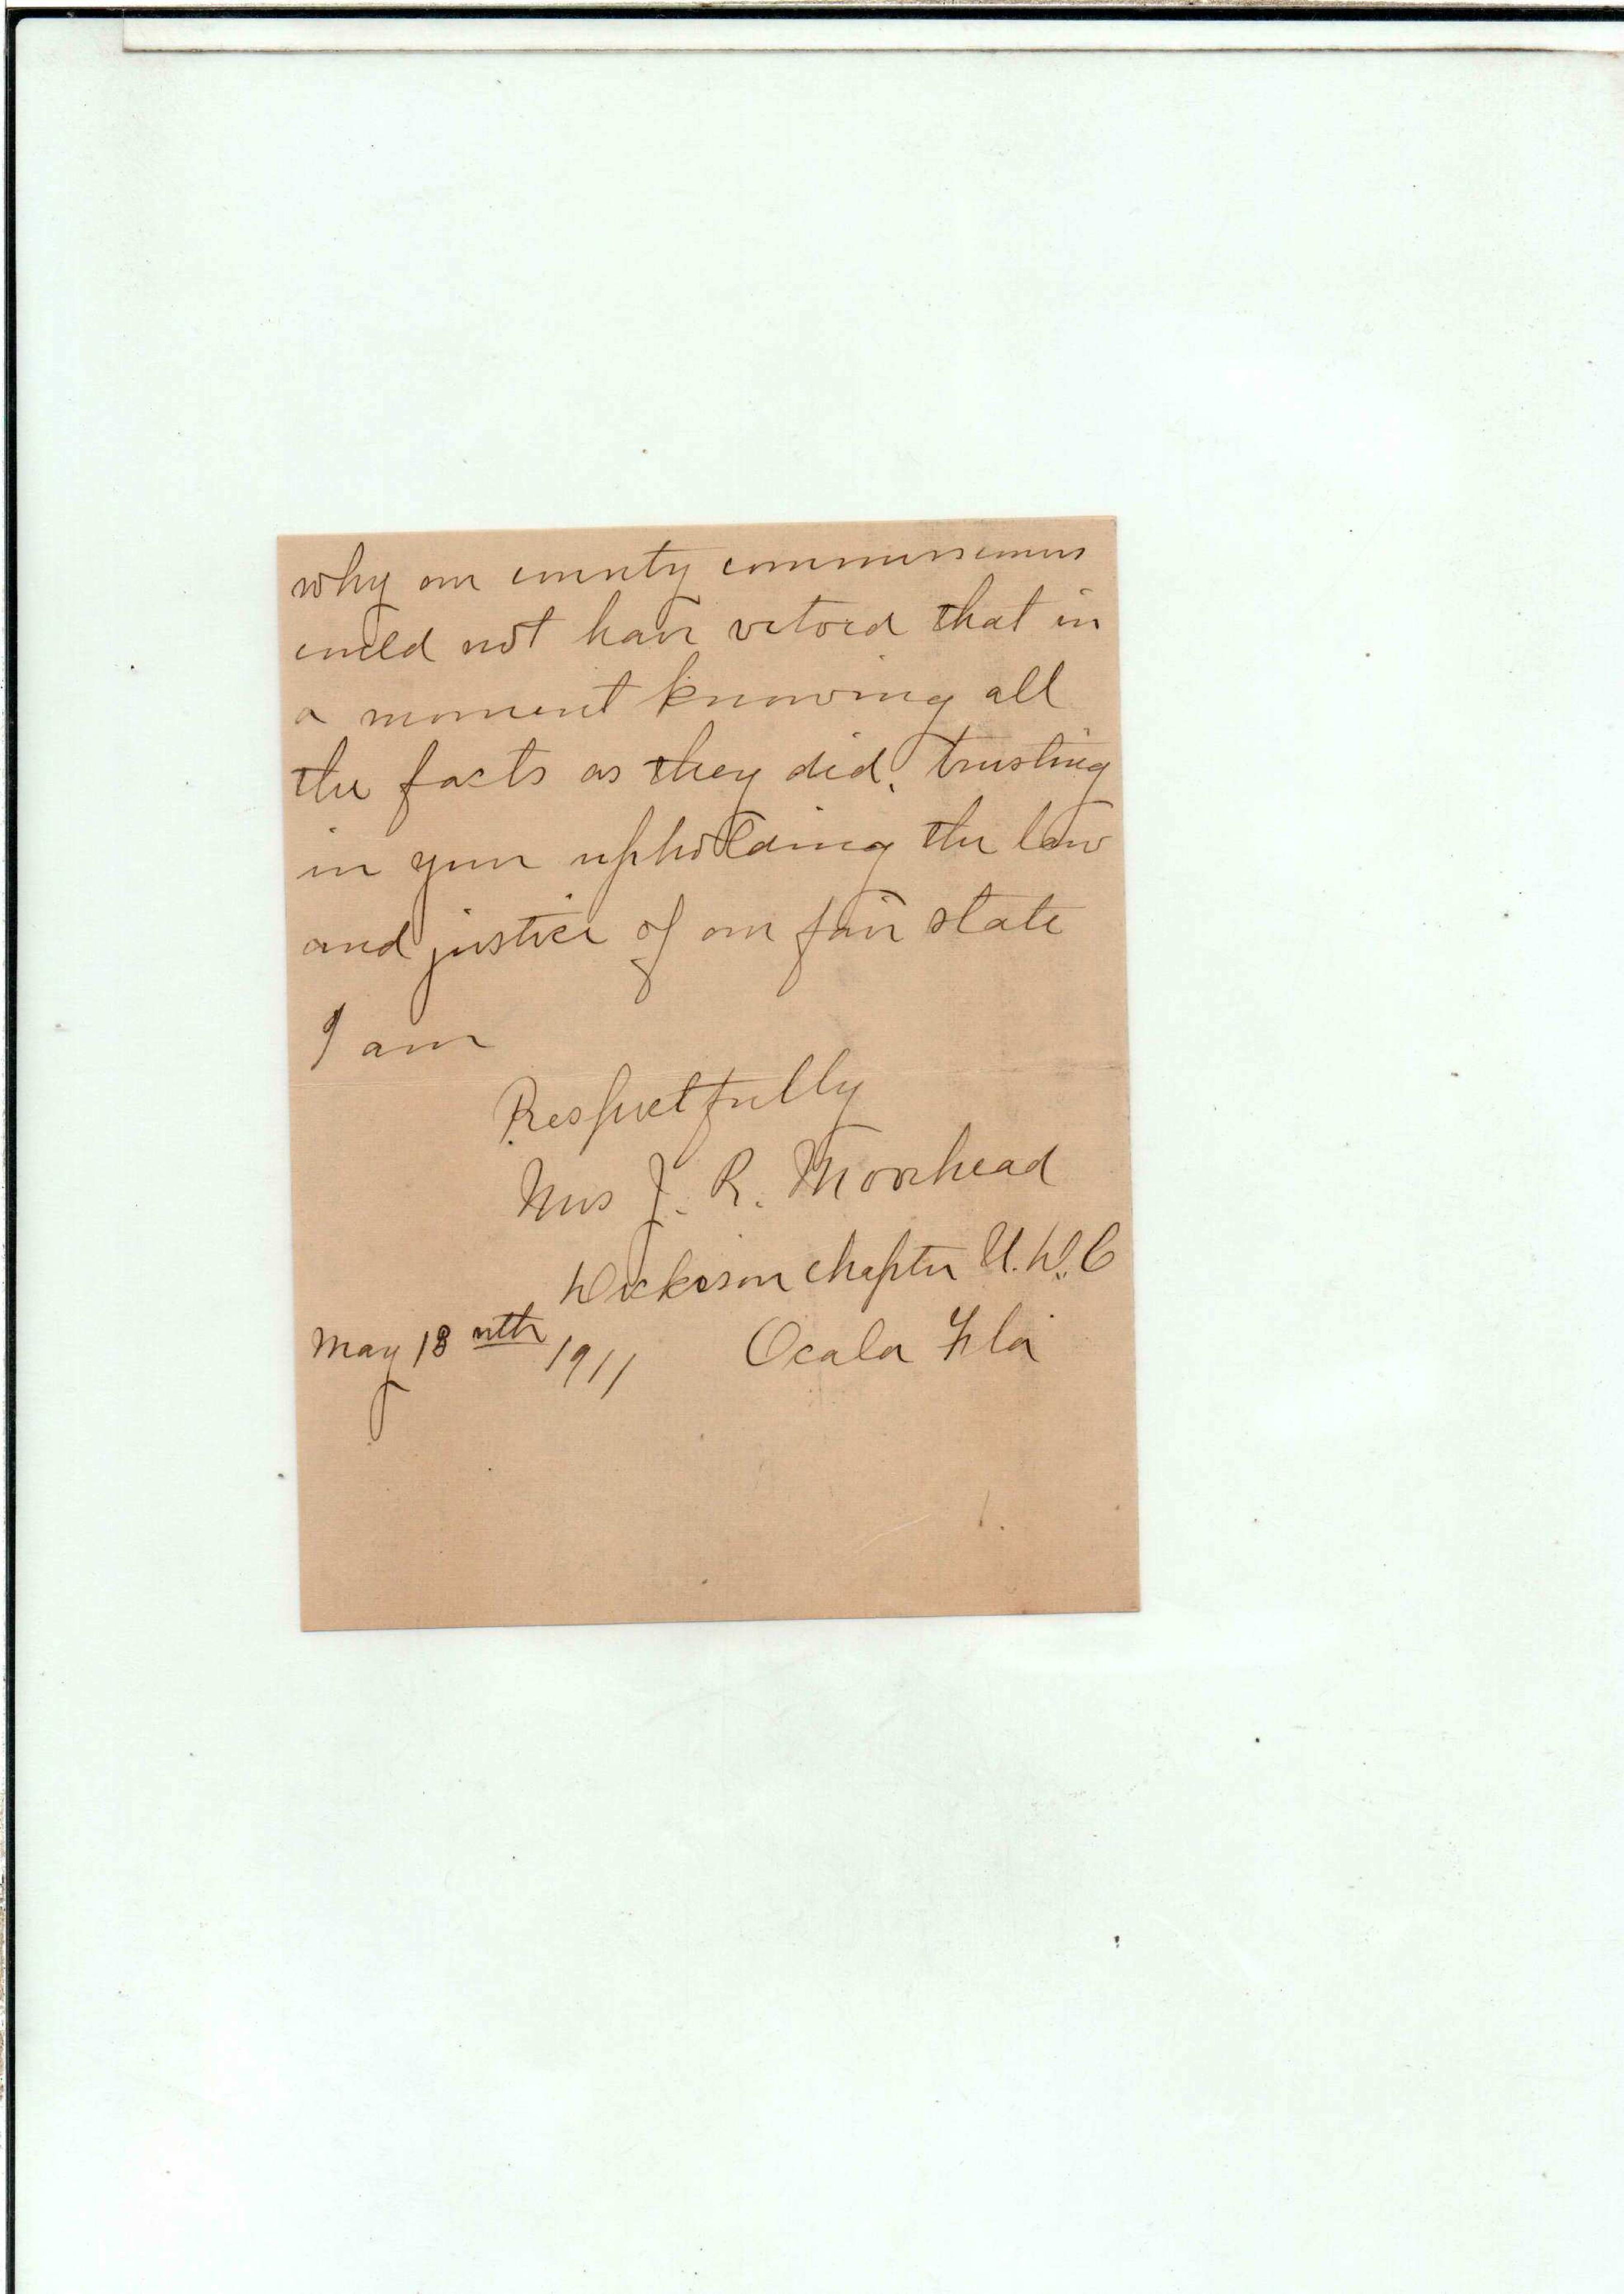 why our county commissioners
could not have vetoed that in
a moment knowing all
the facts as they did, trusting
in your upholding the law
and justice of our fair state
I am
Respectfully
Mrs J. R. Moorhead
Dickison chapter U.D.C
May 18 nth 1911 Ocala Fla